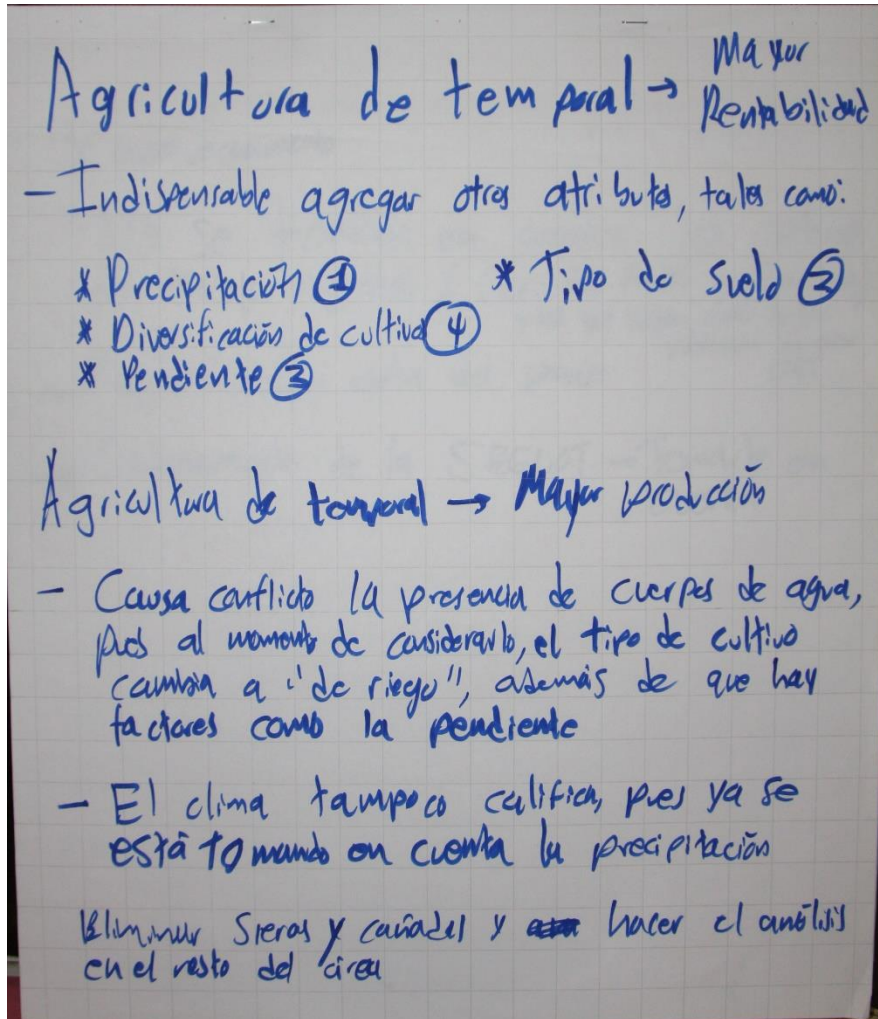 Agricultura de temporal → Mayor
Rentabilidad
- Indispensable agregar otros atributos, tales como:
* Precipitación ① * Tipo de suelo ②
* Diversificación de cultivo ④
* Pendiente ③
Agricultura de temporal → Mayor producción
- Causa conflicto la presencia de cuerpos de agua,
pues al momento de considerarlo, el tipo de cultivo
cambia a "de riego", además de que hay
factores como la pendiente
- El clima tampoco califica, pues ya se
está tomando en cuenta la precipitación
Eliminar Sieras y cañadas y hacer el análisis
en el resto del área